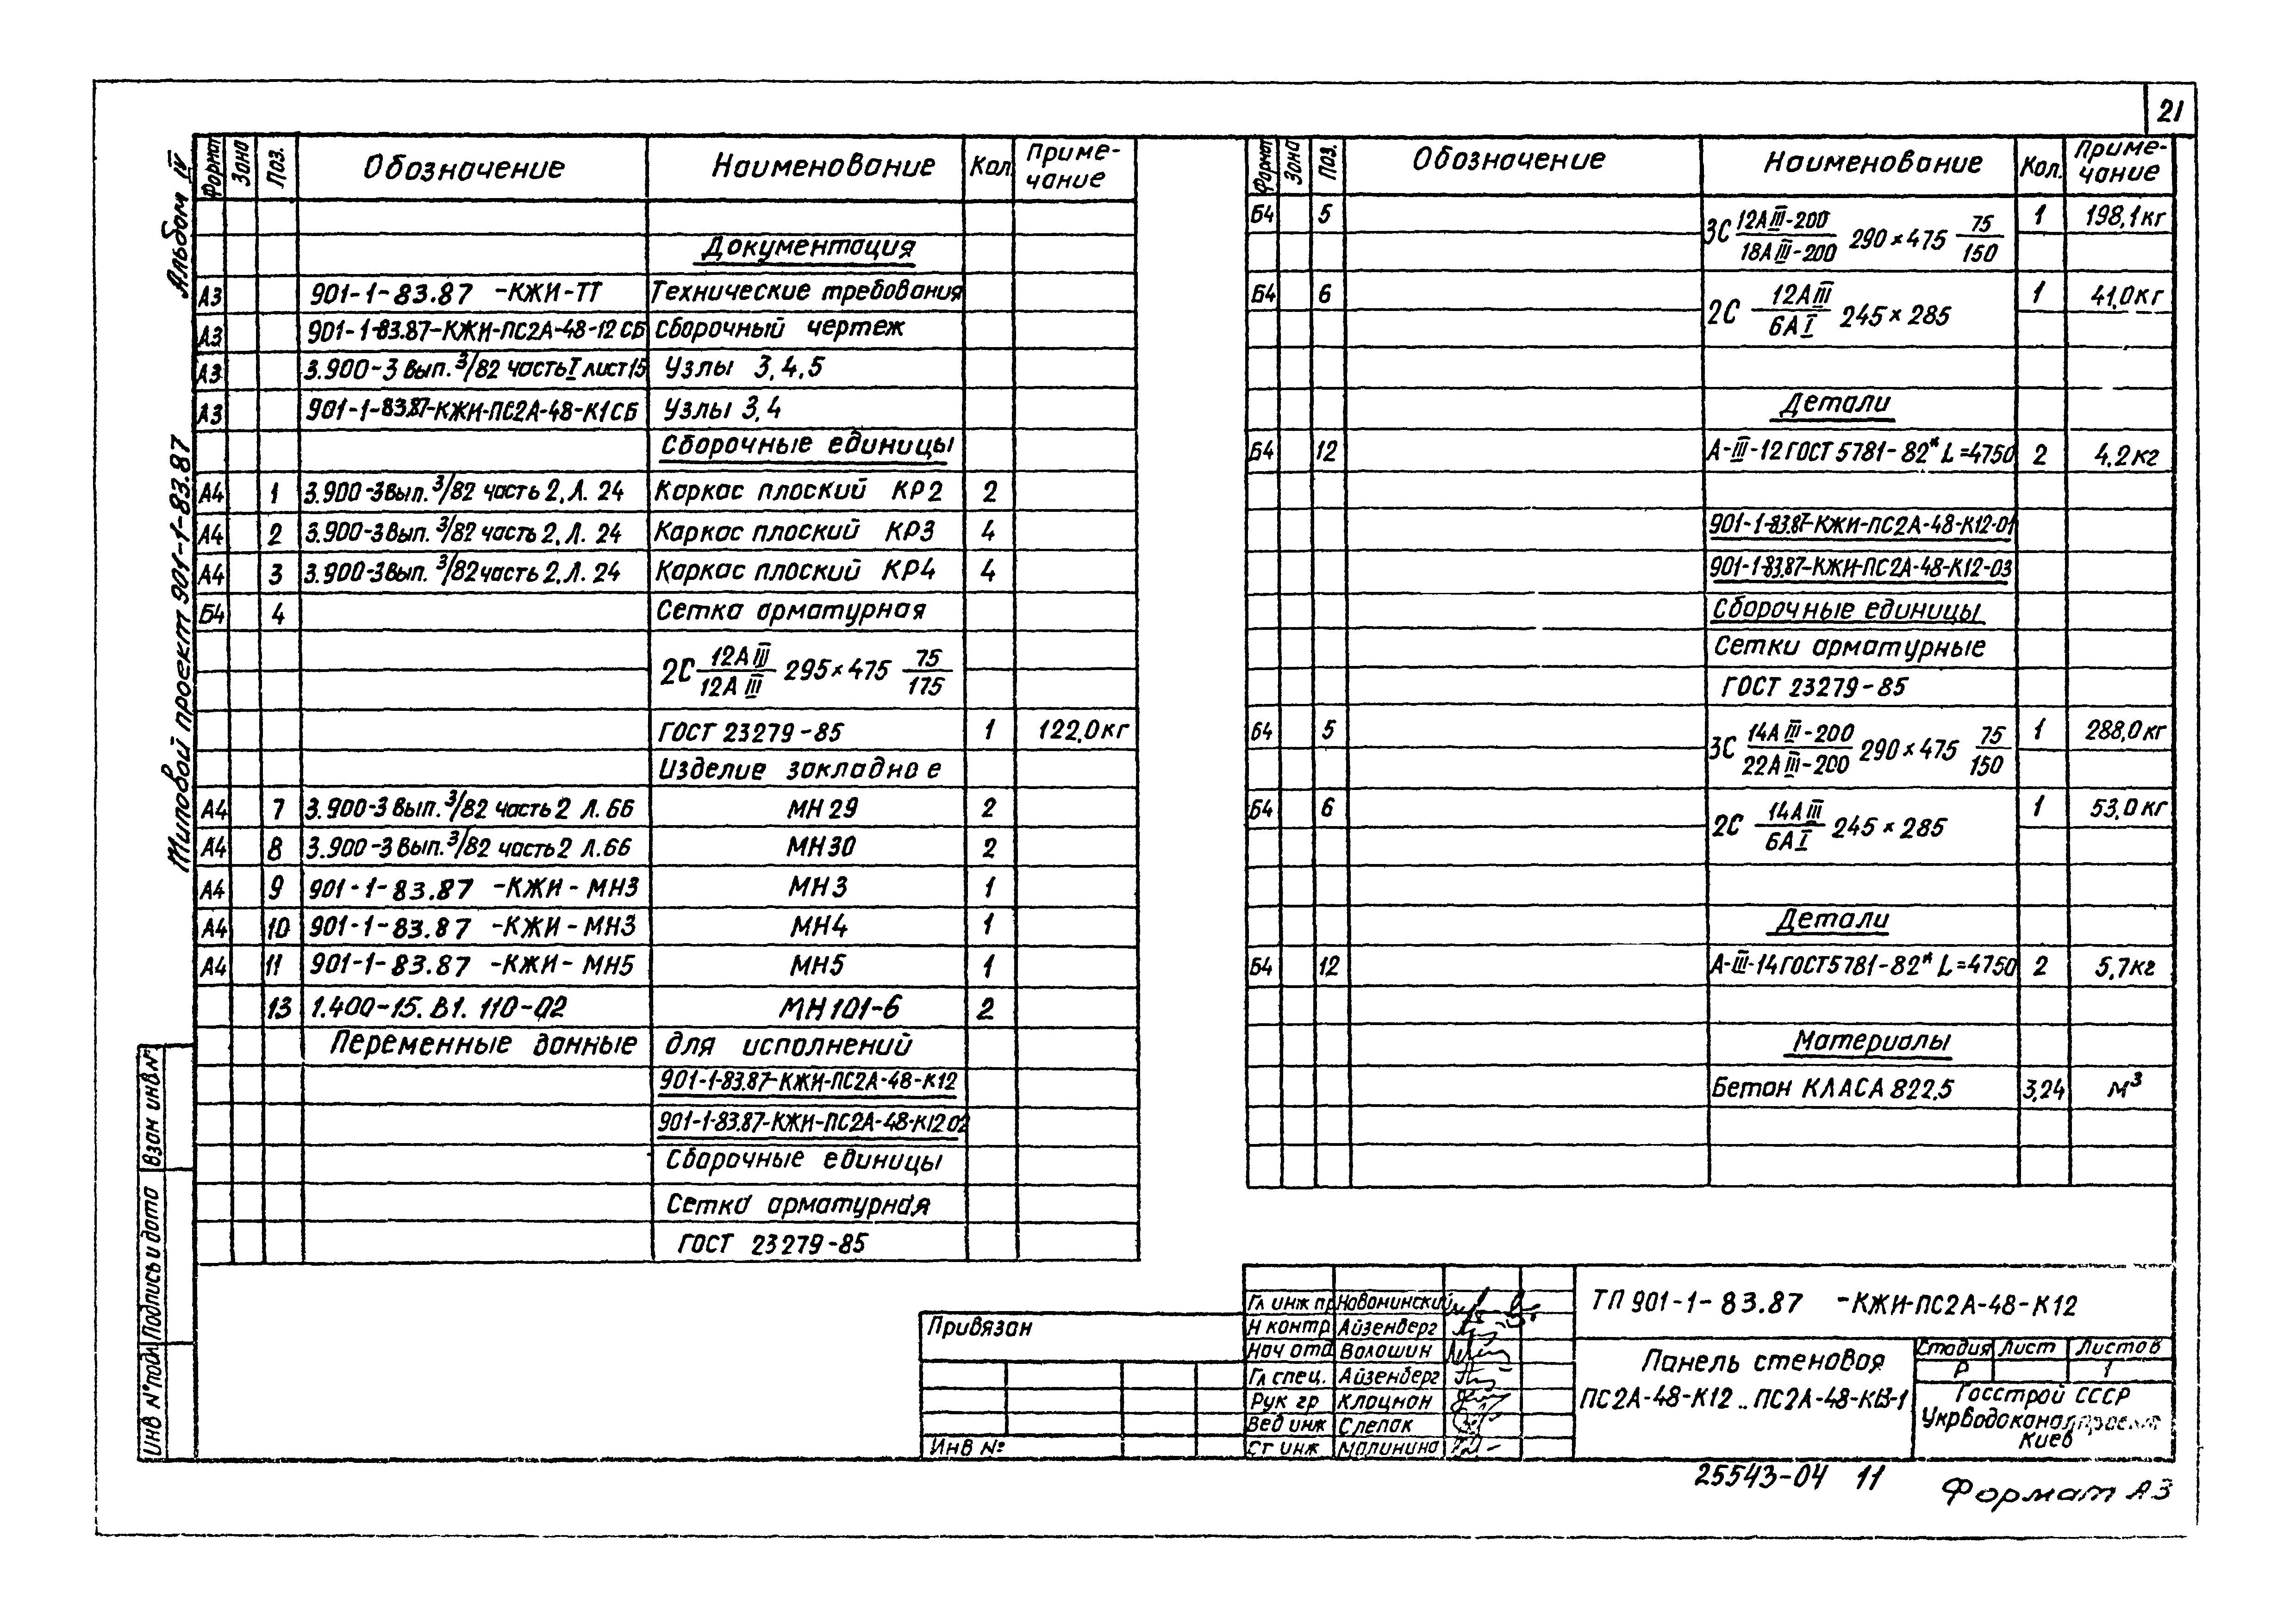 21
Альбом IV
Типовой проект 901-1-83.87
Формат Зона Поз. Обозначение Наименование Кол. Приме-чание
Документация
А3 901-1-83.87 -КЖИ-ТТ Технические требования
А3 901-1-83.87-КЖИ-ПС2А-48-12 СБ Сборочный чертеж
А3 3.900-3 Вып. 3/82 часть I лист 15 Узлы 3,4,5
А3 901-1-83.87-КЖИ-ПС2А-48-К1СБ Узлы 3,4
Сборочные единицы
А4 1 3.900-3 Вып. 3/82 часть 2, Л. 24 Каркас плоский КР2 2
А4 2 3.900-3 Вып. 3/82 часть 2, Л. 24 Каркас плоский КР3 4
А4 3 3.900-3 Вып. 3/82 часть 2, Л. 24 Каркас плоский КР4 4
Б4 4 Сетка арматурная
2С 12АIII/12АIII 295×475 75/175
ГОСТ 23279-85 1 122,0кг
Изделие закладное
А4 7 3.900-3 Вып. 3/82 часть 2 Л. 66 МН 29 2
А4 8 3.900-3 Вып. 3/82 часть 2 Л. 66 МН30 2
А4 9 901-1-83.87 -КЖИ-МН3 МН3 1
А4 10 901-1-83.87 -КЖИ-МН3 МН4 1
А4 11 901-1-83.87 -КЖИ-МН5 МН5 1
13 1.400-15. В1. 110-02 МН101-6 2
Переменные данные для исполнений
901-1-83.87-КЖИ-ПС2А-48-К12
901-1-83.87-КЖИ-ПС2А-48-К12 02
Сборочные единицы
Сетка арматурная
ГОСТ 23279-85
Формат Зона Поз. Обозначение Наименование Кол. Приме-чание
Б4 5 3С 12АIII-200/18АIII-200 290×475 75/150 1 198,1кг
Б4 6 2С 12АIII/6АI 245×285 1 41,0кг
Детали
Б4 12 А-III-12 ГОСТ 5781-82* L=4750 2 4,2кг
901-1-83.87-КЖИ-ПС2А-48-К12-01
901-1-83.87-КЖИ-ПС2А-48-К12-03
Сборочные единицы
Сетки арматурные
ГОСТ 23279-85
Б4 5 3С 14АIII-200/22АIII-200 290×475 75/150 1 288,0кг
Б4 6 2С 14АIII/6АI 245×285 1 53,0кг
Детали
Б4 12 А-III-14 ГОСТ 5781-82* L=4750 2 5,7кг
Материалы
Бетон КЛАСА В22,5 3,24 м3
Взам инв №
Подпись и дата
Инв № подл
Привязан
Инв №
Гл инж пр Новоминский
Н контр Айзенберг
Нач отд Волошин
Гл спец. Айзенберг
Рук гр Клоцман
Вед инж Слепак
Ст инж Малинина
ТП 901-1-83.87 -КЖИ-ПС2А-48-К12
Панель стеновая
ПС2А-48-К12..ПС2А-48-К13-1
Стадия Лист Листов
Р 1
Госстрой СССР
Укрводоканалпроект
Киев
25543-04 11
Формат А3